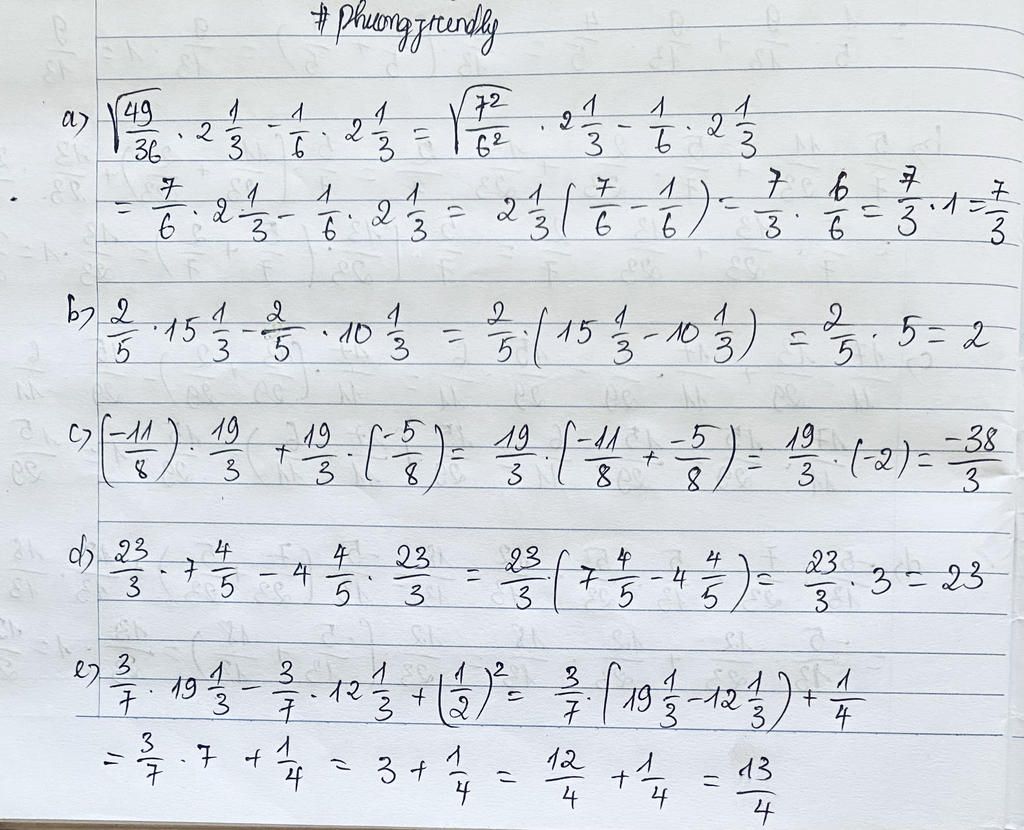 # Phuongfriendly
a) √(49/36) · 2 1/3 - 1/6 · 2 1/3 = √(7²/6²) · 2 1/3 - 1/6 · 2 1/3
= 7/6 · 2 1/3 - 1/6 · 2 1/3 = 2 1/3 (7/6 - 1/6) = 7/3 · 6/6 = 7/3 · 1 = 7/3
b) 2/5 · 15 1/3 - 2/5 · 10 1/3 = 2/5 · (15 1/3 - 10 1/3) = 2/5 · 5 = 2
c) (-11/8) · 19/3 + 19/3 · (-5/8) = 19/3 · (-11/8 + -5/8) = 19/3 · (-2) = -38/3
d) 23/3 · 7 4/5 - 4 4/5 · 23/3 = 23/3 · (7 4/5 - 4 4/5) = 23/3 · 3 = 23
e) 3/7 · 19 1/3 - 3/7 · 12 1/3 + (1/2)² = 3/7 · (19 1/3 - 12 1/3) + 1/4
= 3/7 · 7 + 1/4 = 3 + 1/4 = 12/4 + 1/4 = 13/4